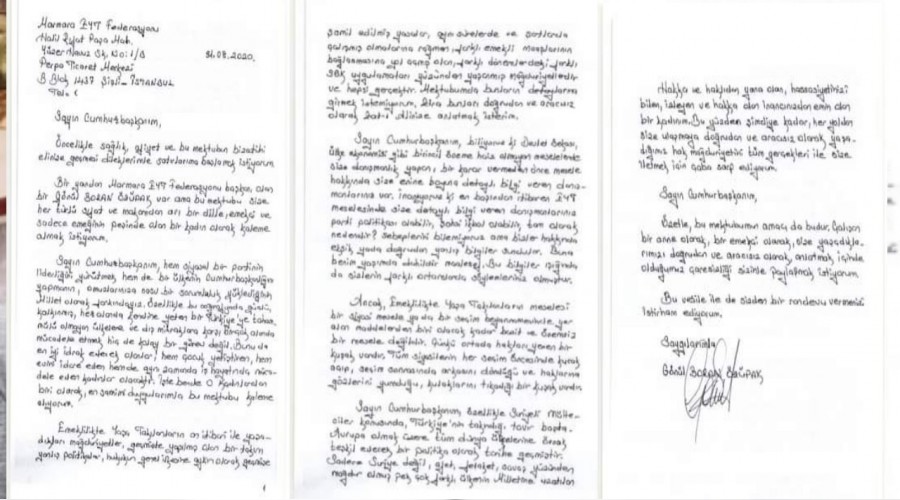 Marmara EYT Federasyonu
Halil Rıfat Paşa Mah.
Yüzer Havuz Sk. No: 1/B
Perpa Ticaret Merkezi
B Blok 1437 Şişli - İSTANBUL
31.08.2020
Sayın Cumhurbaşkanım,
Öncelikle sağlık, afiyet ve bu mektubun bizatihi
elinize geçmesi dileklerimle satırlarıma başlamak istiyorum.
Bir yandan Marmara EYT Federasyonu başkanı olan
bir Gönül BORAN ÖZÜPAK var ama bu mektubu size
her türlü sıfat ve makamdan arı bir dille, emekçi ve
sadece emeğinin peşinde olan bir kadın olarak kaleme
almak istiyorum.
Sayın Cumhurbaşkanım, hem siyasi bir partinin
liderliğini yürütmek, hem de bu ülkenin Cumhurbaşkanlığını
yapmanın, omuzlarınıza nasıl bir sorumluluk yüklediğinin
Millet olarak farkındayız. Özellikle bu coğrafyada güçlü,
kalkınmış, her alanda kendine yeten bir Türkiye'ye
mücadele etmek hiç de kolay bir görev değil. Bunu da
en iyi idrak edecek olanlar; hem çocuk yetiştiren, hem
evini idare eden hem de aynı zamanda iş hayatında müca-
dele eden kadınlar olacaktır. İşte bende o kadınlardan
biri olarak, en samimi duygularımla bu mektubu kaleme
alıyorum.
Emeklilikte Yaşa Takılanların on itibari ile yaşa-
dıkları mağduriyetler, geçmişte yapılmış olan bir takım
yanlış politikalar, hukukun genel ilkesine aykırı olarak geçmişe
şamil edilmiş yasalar, aynı sürelerde ve şartlarda
çalışmış olmalarına rağmen, farklı emekli maaşlarının
bağlanmasına yol açmış olan, farklı dönemlerdeki farklı
SGK uygulamaları yüzünden yaşanmış mağduriyetlerdir
ve hepsi gerçektir. Mektubumda bunların detaylarına
girmek istemiyorum. Zira bunları doğrudan ve aracısız
olarak Zat-ı Alinize anlatmak isterim.
Sayın Cumhurbaşkanım, biliyoruz ki Devlet Bekası,
ülke ekonomisi gibi birincil öneme haiz olmayan meselelerde
size danışmanlık yapan, bir karar vermeden önce mesele
hakkında size enine boyuna detaylı bilgi veren danış-
manlarınız var. İnanıyoruz ki en başından itibaren EYT
meselesinde size detaylı bilgi veren danışmanlarınız
parti politikası olabilir, şahsi ikbal olabilir, tam olarak
nedendir? Sebeplerini bilemiyoruz ama bizler hakkında
eksik, yada doğrudan yanlış bilgiler sundular. Buna
benim yaşımda dahildir maalesef. Bu bilgiler ışığında
da sizlerin farklı ortamlarda söylemleriniz olmuştur.
Ancak, Emeklilikte Yaşa Takılanların meselesi
bir siyasi mesele ya da bir seçim beyannamesinde yer
alan maddelerden biri olacak kadar basit ve önemsiz
bir mesele değildir. Çünkü ortada hakları yenen bir
kuşak vardır. Tüm siyasilerin her seçim öncesinde kucak
açıp, seçim sonrasında arkasını döndüğü ve haklarına
gözlerini yumduğu, kulaklarını tıkadığı bir kuşak vardır.
Sayın Cumhurbaşkanım, özellikle Suriyeli Mülte-
ciler konusunda, Türkiye'nin takındığı tavır başta
Avrupa olmak üzere tüm dünya ülkelerine örnek
teşkil edecek bir politika olarak tarihe geçmiştir.
Sadece Suriye değil, afet, felaket, savaş yüzünden
mağdur olmuş pek çok farklı ülkenin Milletine uzatılan
Hakka ve haklıdan yana olan, hassasiyetinizi
bilen, izleyen ve hakka olan inancınızdan emin olan
bir kadınım. Bu yüzden şimdiye kadar, her yoldan
size ulaşmaya doğrudan ve aracısız olarak yaşa-
dığımız hak mağduriyetini tüm gerçekleri ile size
iletmek için çaba sarf ediyorum.
Sayın Cumhurbaşkanım,
Özetle, bu mektubumun amacı da budur. Çalışan
bir anne olarak, bir emekçi olarak, size yaşadıkla-
rımızı doğrudan ve aracısız olarak, anlatmak, içinde
olduğumuz çaresizliği sizinle paylaşmak istiyorum.
Bu vesile ile de sizden bir randevu vermenizi
istirham ediyorum.
Saygılarımla
Gönül BORAN ÖZÜPAK
1